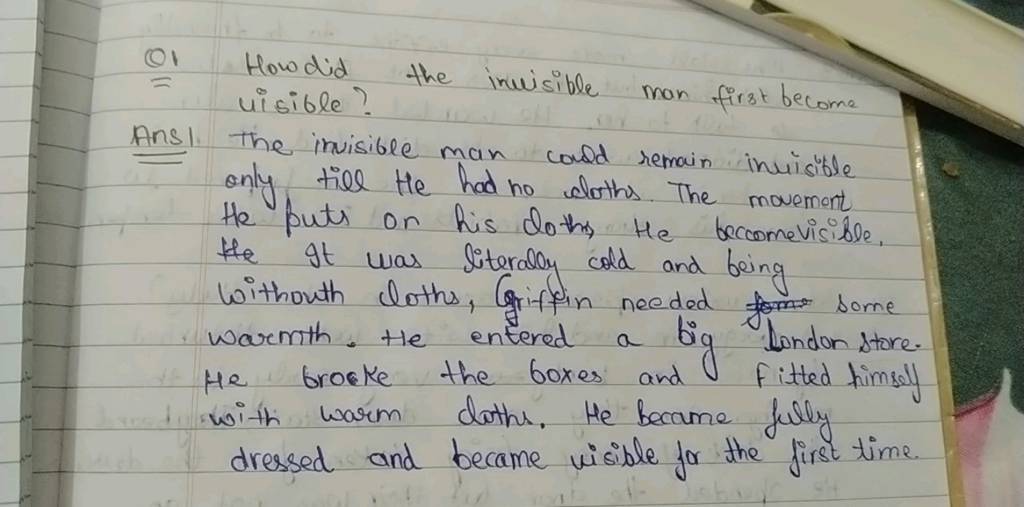 Q1 How did the invisible man first become
visible?
Ans1. The invisible man could remain invisible
only till He had no cloths. The movement
He puts on his cloths He beccome visible.
He It was literally cold and being
withouth cloths, Griffin needed some some
warmth. He entered a big London store.
He brocke the boxes and Fitted himself
with warm cloths. He became fully
dressed and became visible for the first time.